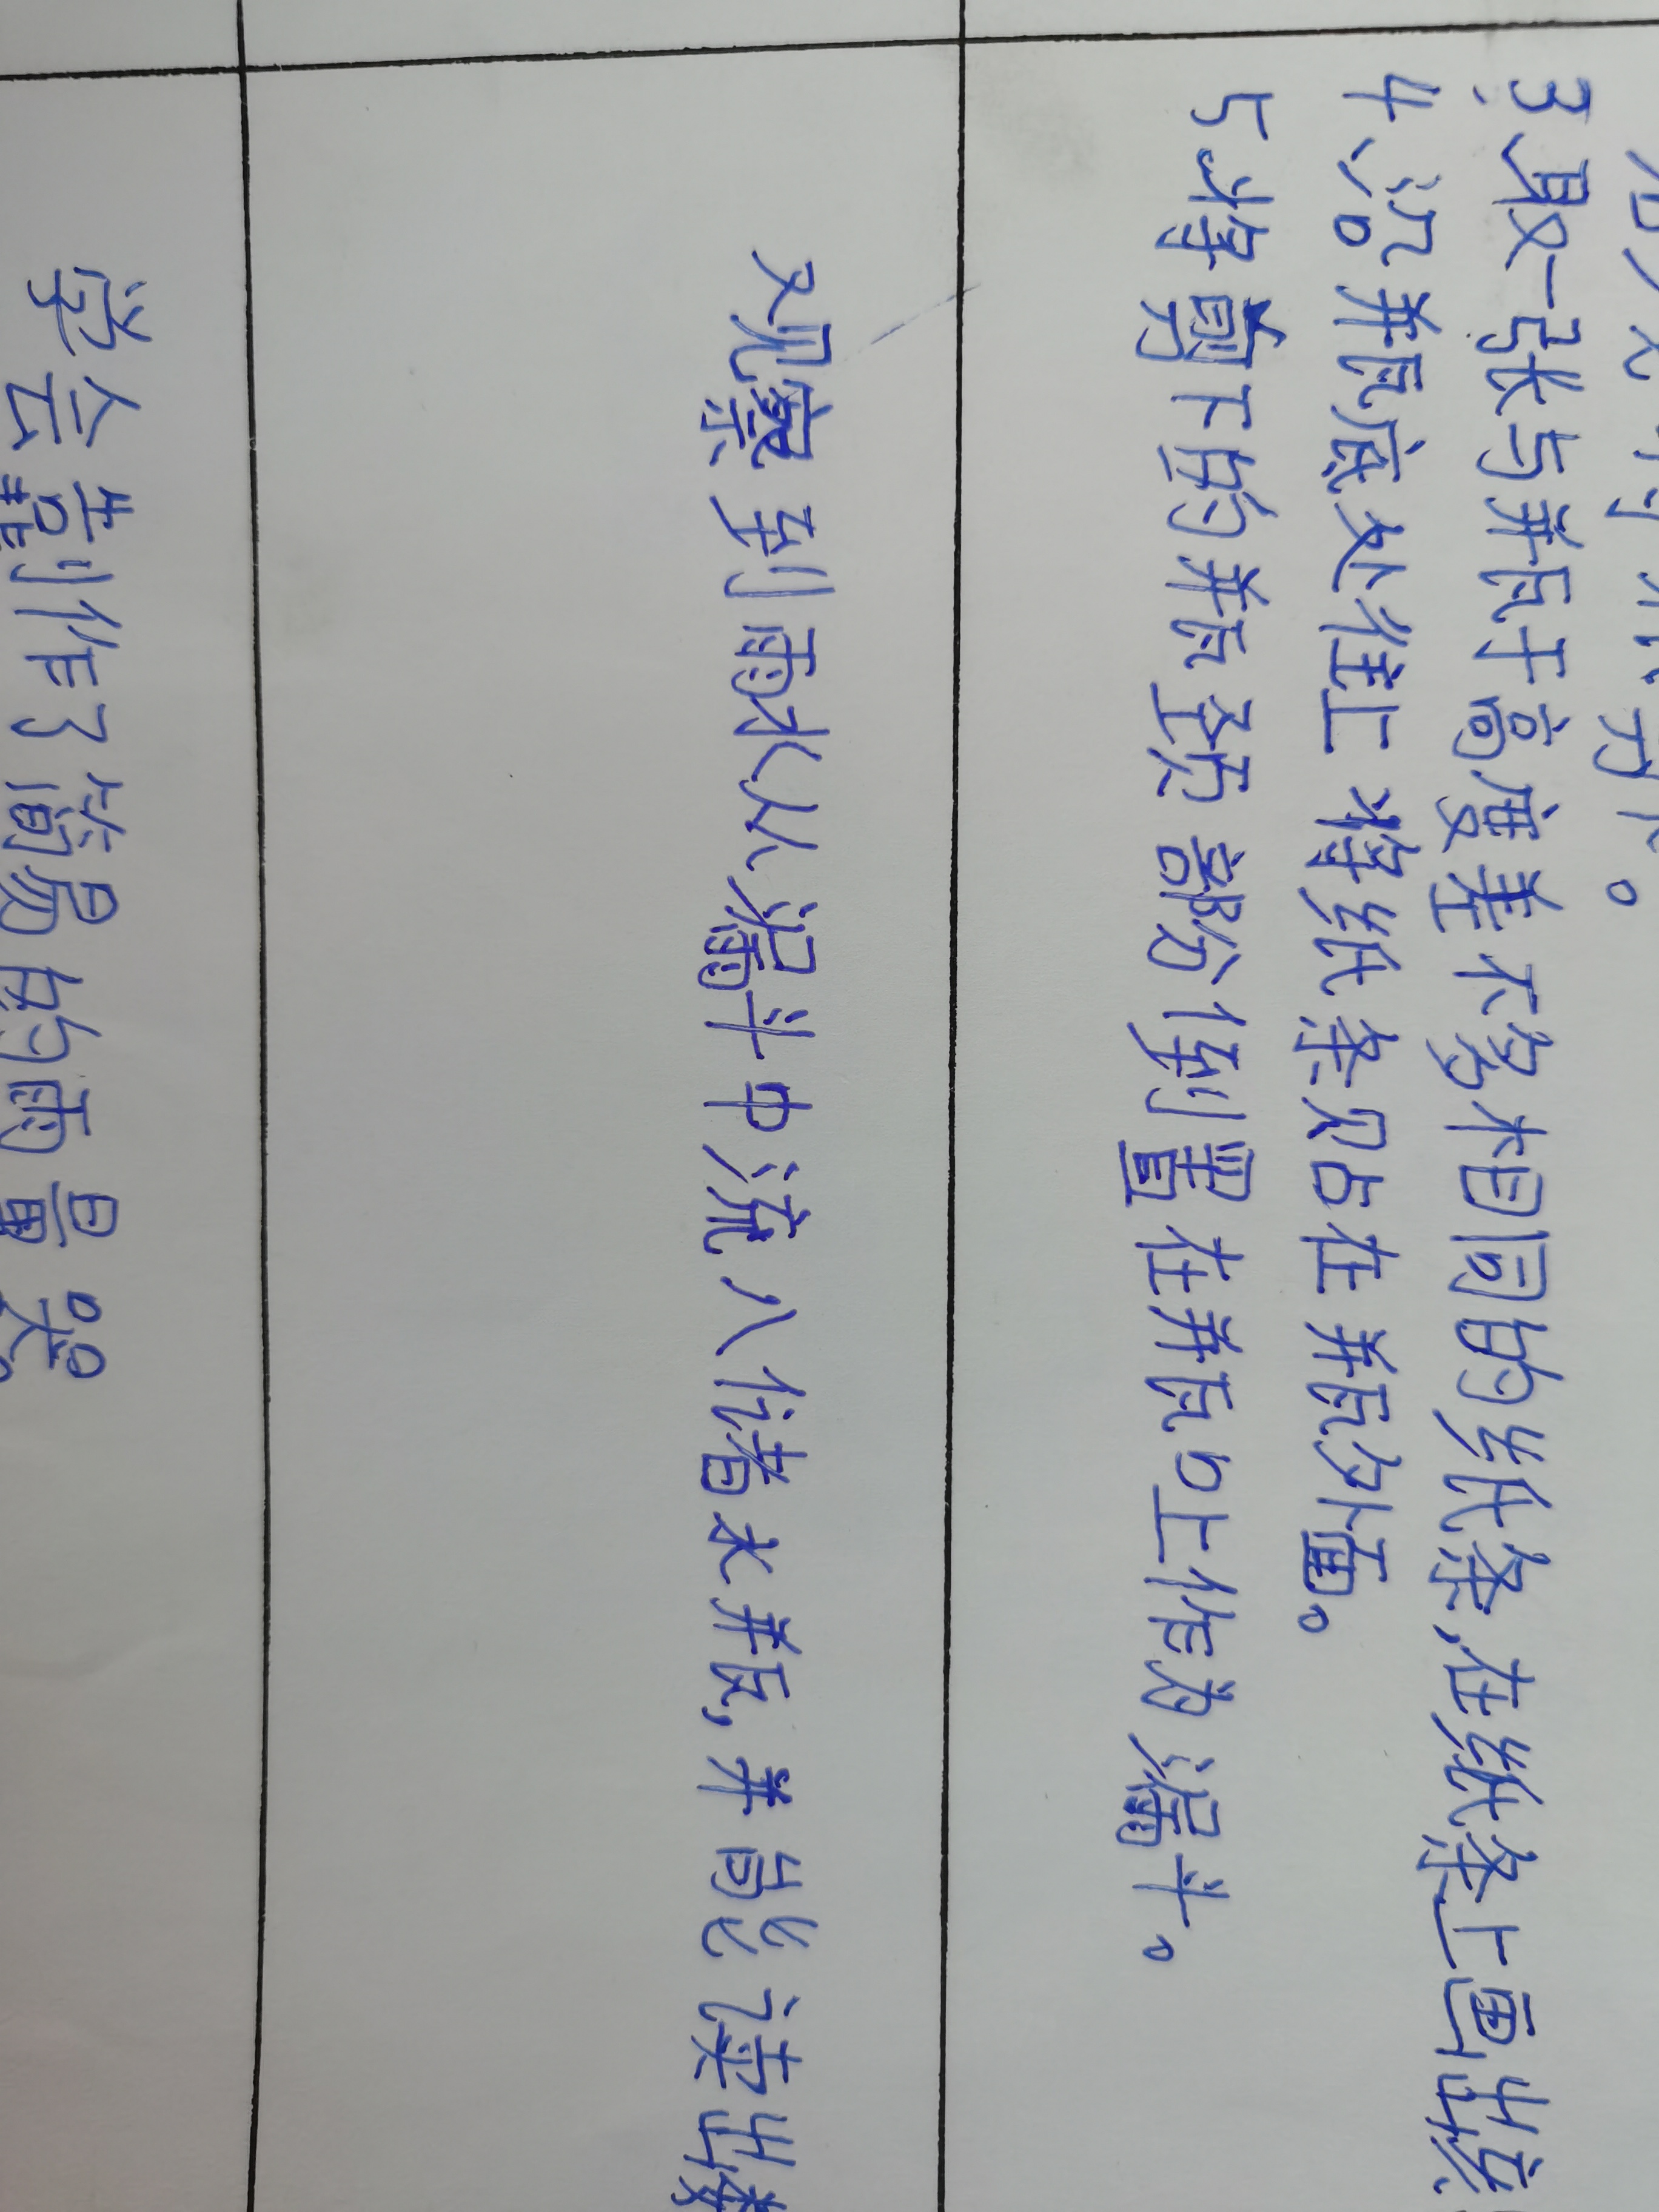 3.取一张与瓶子高度差不多相同的纸条,在纸条上画出
4、沿瓶底处往上将纸条贴在瓶外面。
5、将剪下的瓶颈部份倒置在瓶口上作为漏斗。
观察到雨水从漏斗中流入储水瓶,并能读出
学会制作了简易的雨量器。